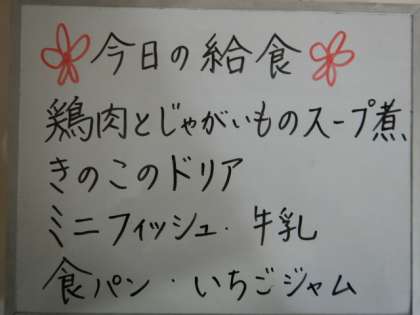 今日の給食
鶏肉とじゃがいものスープ煮
きのこのドリア
ミニフィッシュ・牛乳
食パン・いちごジャム